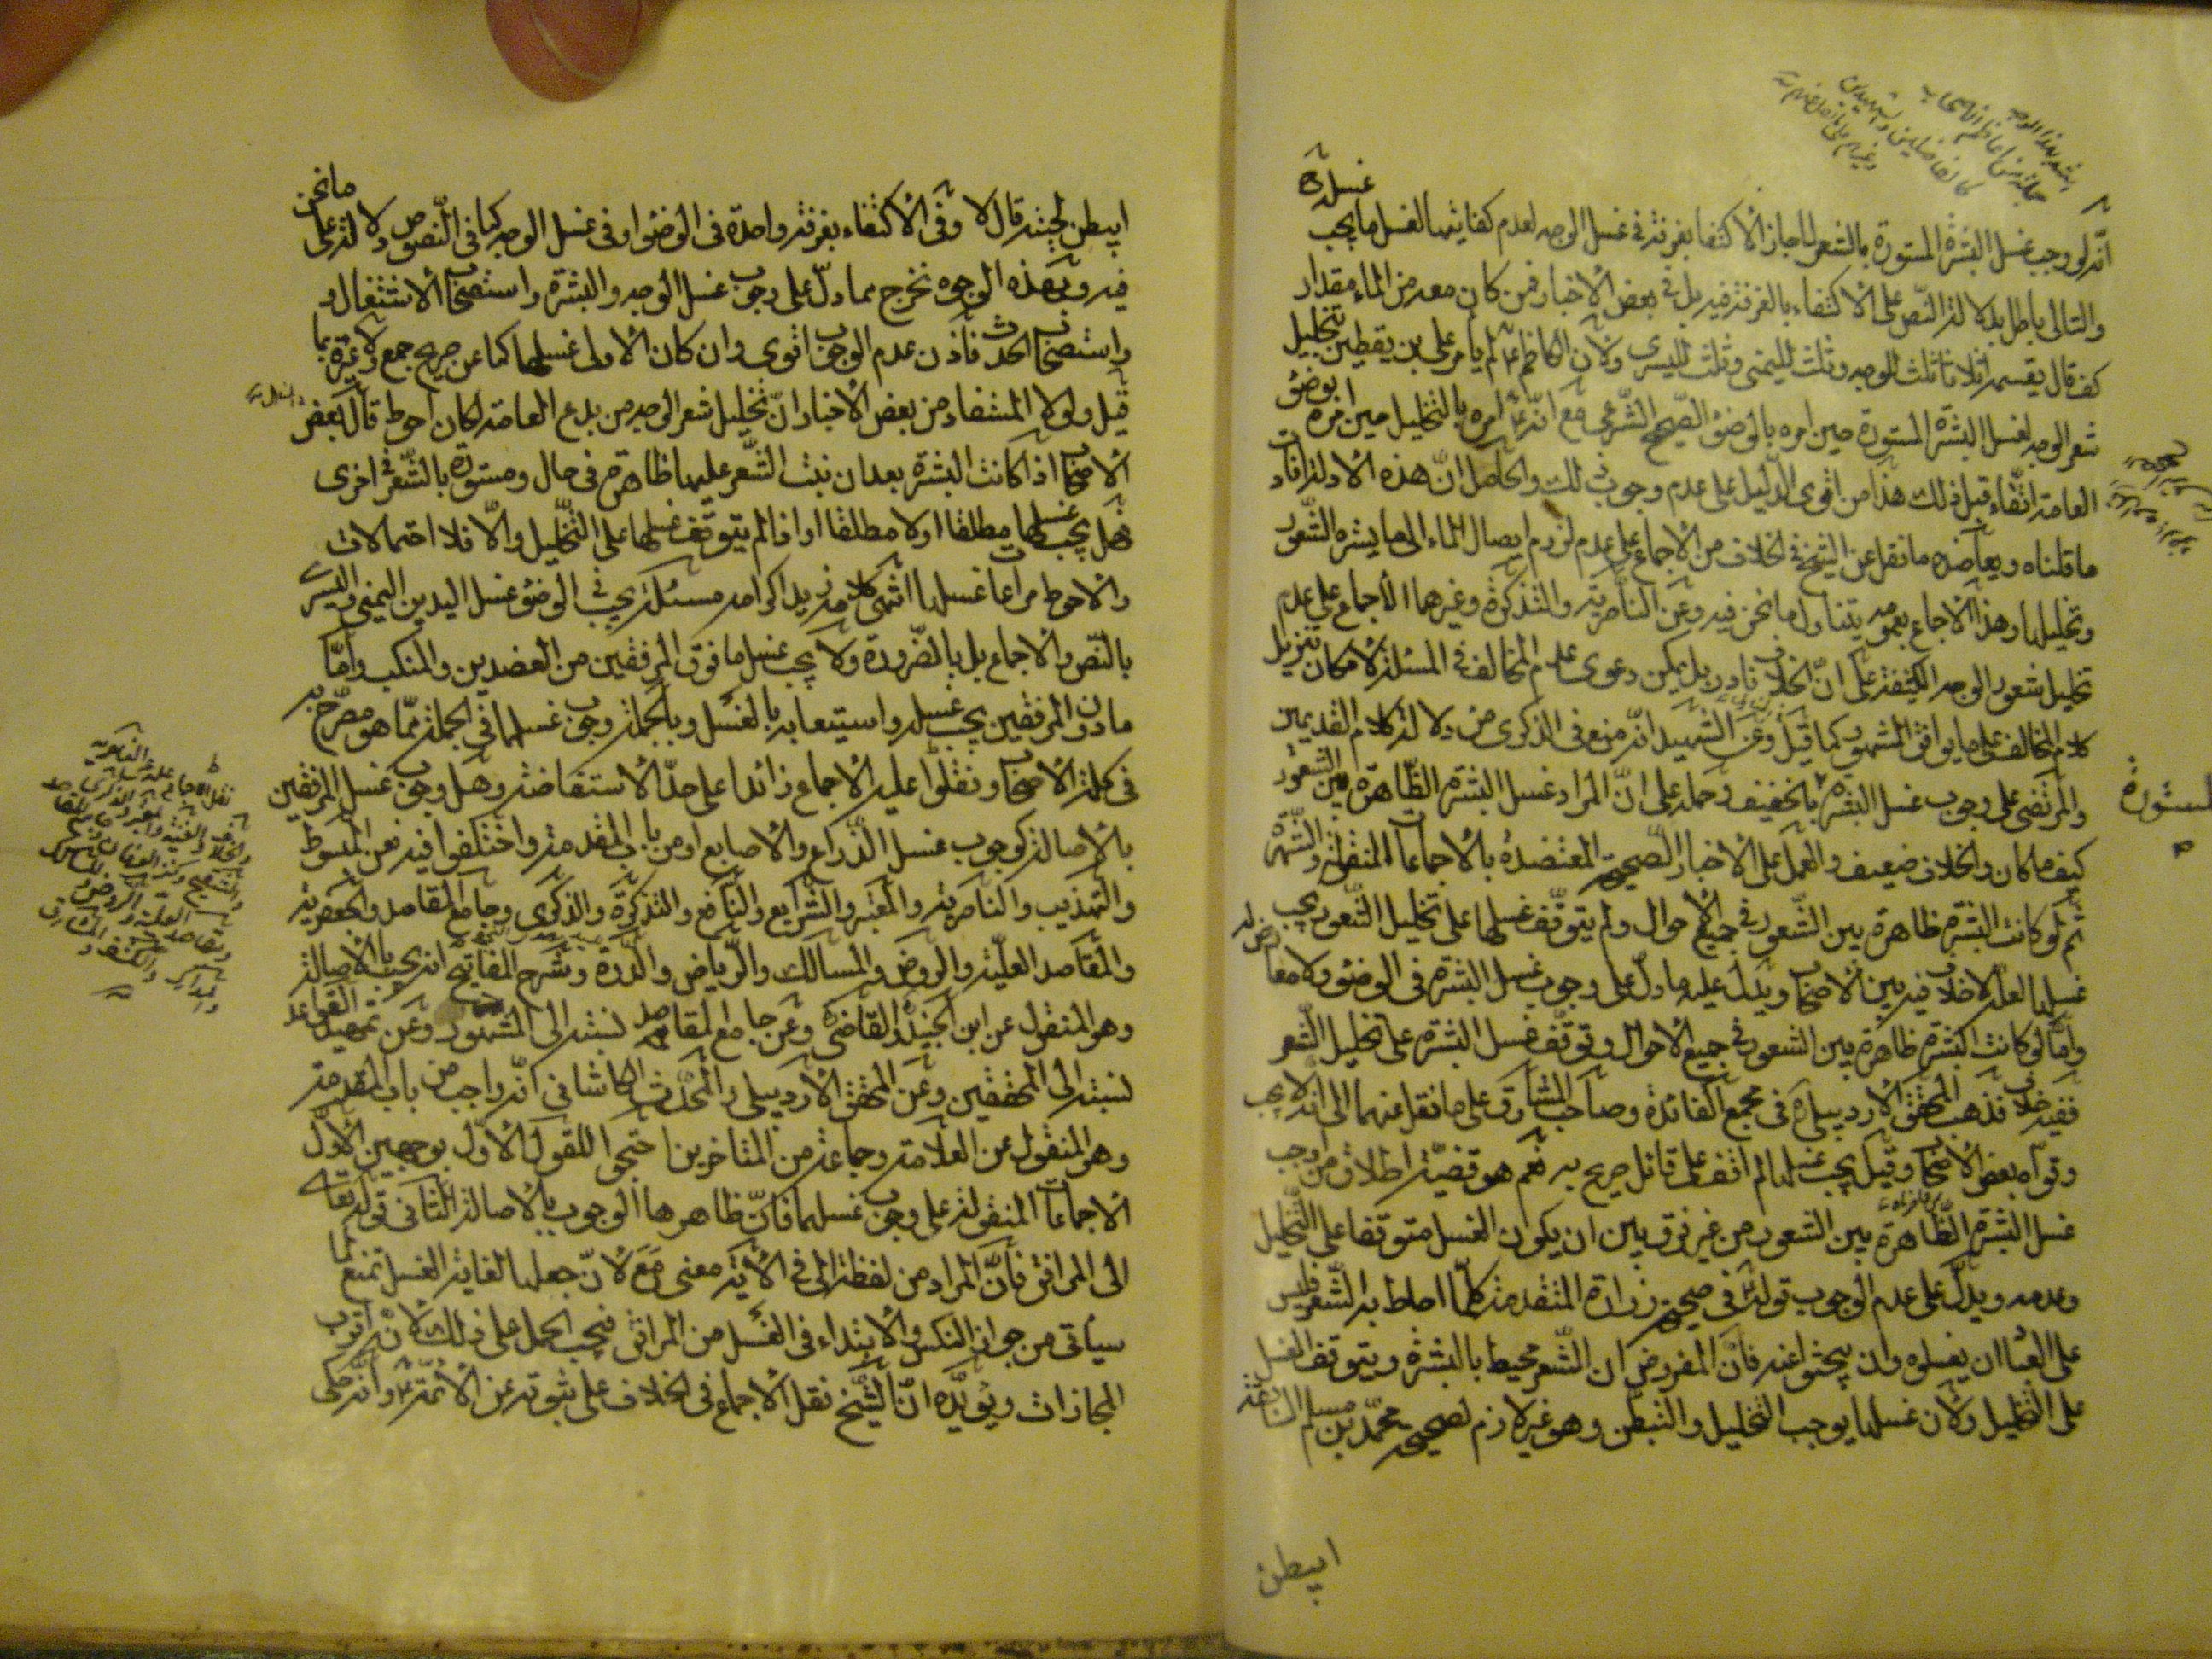 انّه لو وجب غسل البشرة المستورة بالشعر لما جاز الاكتفا بغرفة في غسل الوجه لعدم كفايتها لغسل ما يجب غسله
والتالى باطل بدلالة النّص على الاكتفاء بالغرفة فيه بل في بعض الاخبار فمن كان معه من الماء مقدار
كف قال يقسمه اثلاثا ثلث للوجه وثلث لليمنى وثلث لليسرى ولان الكاظم ع لم يأمر على بن يقطين بتخليل
شعر الوجه لغسل البشرة المستورة حين امره بالوضوء الصحيح الشّرعى مع انّه ع امره بالتخليل حين امره بوضوء
العامة اتقاء قبل ذلك هذا من اقوى الدليل على عدم وجوب ذلك والحاصل انّ هذه الادلة افادت
ما قلناه ويعاضده ما نقل عن الشيخ في الخلاف من الاجماع على عدم لزوم ايصال الماء الى ما يستره الشّعور
وتخليلها وهذا الاجماع بعمومه يتناول ما نحن فيه وعن الناصرية والتذكرة وغيرهما الاجماع على عدم
تخليل شعور الوجه الكثيفة على انّ الخلاف نادر بل يمكن دعوى عدم المخالف في المسئلة لامكان تنزيل
كلام المخالف على ما يوافق المشهور كما قيل وعن الشهيد انّه منع في الذكرى من دلالة كلام القديمين
والمرتضى على وجوب غسل البشرة المستورة بالخفيف وحمله على انّ المراد غسل البشرة الظّاهرة بين الشعور
كيف ما كان والخلاف ضعيف والعمل على الاخبار الصحيحة المعتضدة بالاجماعات المنقولة والشهرة
ثم لو كانت البشرة ظاهرة بين الشّعور في جميع الاحوال ولم يتوقّف غسلها على تخليل الشّعور يجب
غسلها لعله لا خلاف فيه بين الاصحاب ويدل عليه ما دلّ على وجوب غسل البشرة في الوضوء ولا معارض له
وامّا لو كانت البشرة ظاهرة بين الشعور في جميع الاحوال وتوقّف غسل البشرة على تخليل الشّعر
ففيه خلاف فذهب المحقق الاردبيلى ره في مجمع الفائدة وصاحب المشارق على ما نقل عنهما الى انّه لا يجب
وقواه بعض الاصحاب وقيل يجب غسلها لم اقف على قائل صريح به نعم هو قضيّة اطلاق من اوجب
غسل البشرة الظّاهرة بين الشعور من غير فرق بين ان يكون الغسل متوقفا على التخليل
وعدمه ويدلّ على عدم الوجوب قوله ع في صحيحة زرارة المتقدمة كلّما احاط به الشّعر فليس
على العباد ان يغسلوه ولان يبحثوا عنه فانّ المفروض ان الشّعر محيط بالبشرة ويتوقف الغسل
على التخليل ولان غسلها يوجب التخليل والتبطن وهو غير لازم لصحيحة محمّد بن مسلم السابقة
ايبطن
ايبطن لحيته قال لا وفى الاكتفاء بغرفة واحدة فى الوضوء او فى غسل الوجه كما فى النّصوص دلالة على ما نحن
فيه وبهذه الوجوه نخرج مما دلّ على وجوب غسل الوجه والبشرة واستصحاب الاشتغال و
واستصحاب الحدث فاذن عدم الوجوب اقوى وان كان الاولى غسلها كما عن صريح جمع لا غيره بما
قيل ولولا المستفاد من بعض الاخبار انّ تخليل شعر الوجه من بدع العامة لكان احوط قال بعض
الاصحاب اذا كانت البشرة بعد ان نبت الشّعر عليها ظاهرة في حال ومستورة بالشّعر في اخرى
هل يجب غسلها مطلقا او لا مطلقا او اذا لم يتوقّف غسلها على التّخليل والّا فلا احتمالات
والاحوط مراعات غسلها انتهى كلامه زيد اكرامه مسئلة يجب في الوضوء غسل اليدين اليمنى واليسرى
بالنّص والاجماع بل بالضّرورة ولا يجب غسل ما فوق المرفقين من العضدين والمنكب وامّا
ما دون المرفقين يجب غسله واستيعابه بالغسل وبالجملة وجوب غسلهما في الجملة ممّا هو مصرّح به
في كلمة الاصحاب ونقلوا عليه الاجماع زائدا على حدّ الاستفاضة وهل وجوب غسل المرفقين
بالاصالة كوجوب غسل الذّراع والاصابع او من باب المقدمة واختلفوا فيه فعن المبسوط
والتهذيب والناصرية والمعتبر والشرايع والنافع والتذكرة والذكرى وجامع المقاصد والجعفرية
والمقاصد العليّة والروض والمسالك والرّياض والدّرة وشرح المفاتيح انه يجب بالاصالة
وهو المنقول عن ابن الجنيد والقاضى وعن جامع المقاصد نسبته الى المشهور وعن تمهيد القواعد
نسبته الى المحققين وعن المحقق الاردبيلى والمحدّث الكاشانى انّه واجب من باب المقدمة
وهو المنقول عن العلّامة وجماعة من المتاخرين احتجوا للقول الاوّل بوجهين الاول
الاجماعات المنقولة على وجوب غسلهما فانّ ظاهرها الوجوب بالاصالة الثانى قوله تعالى
الى المرافق فانّ المراد من لفظة الى في الآية معنى مع لانّ جعلها لغاية الغسل تمنع لما
سيأتى من جواز النكس والابتداء فى الغسل من المرافق فيجب الحمل على ذلك لانّه اقرب
المجازات ويؤيّده انّ الشّيخ نقل الاجماع فى الخلاف على ثبوته عن الائمّة ع وانّه حكى